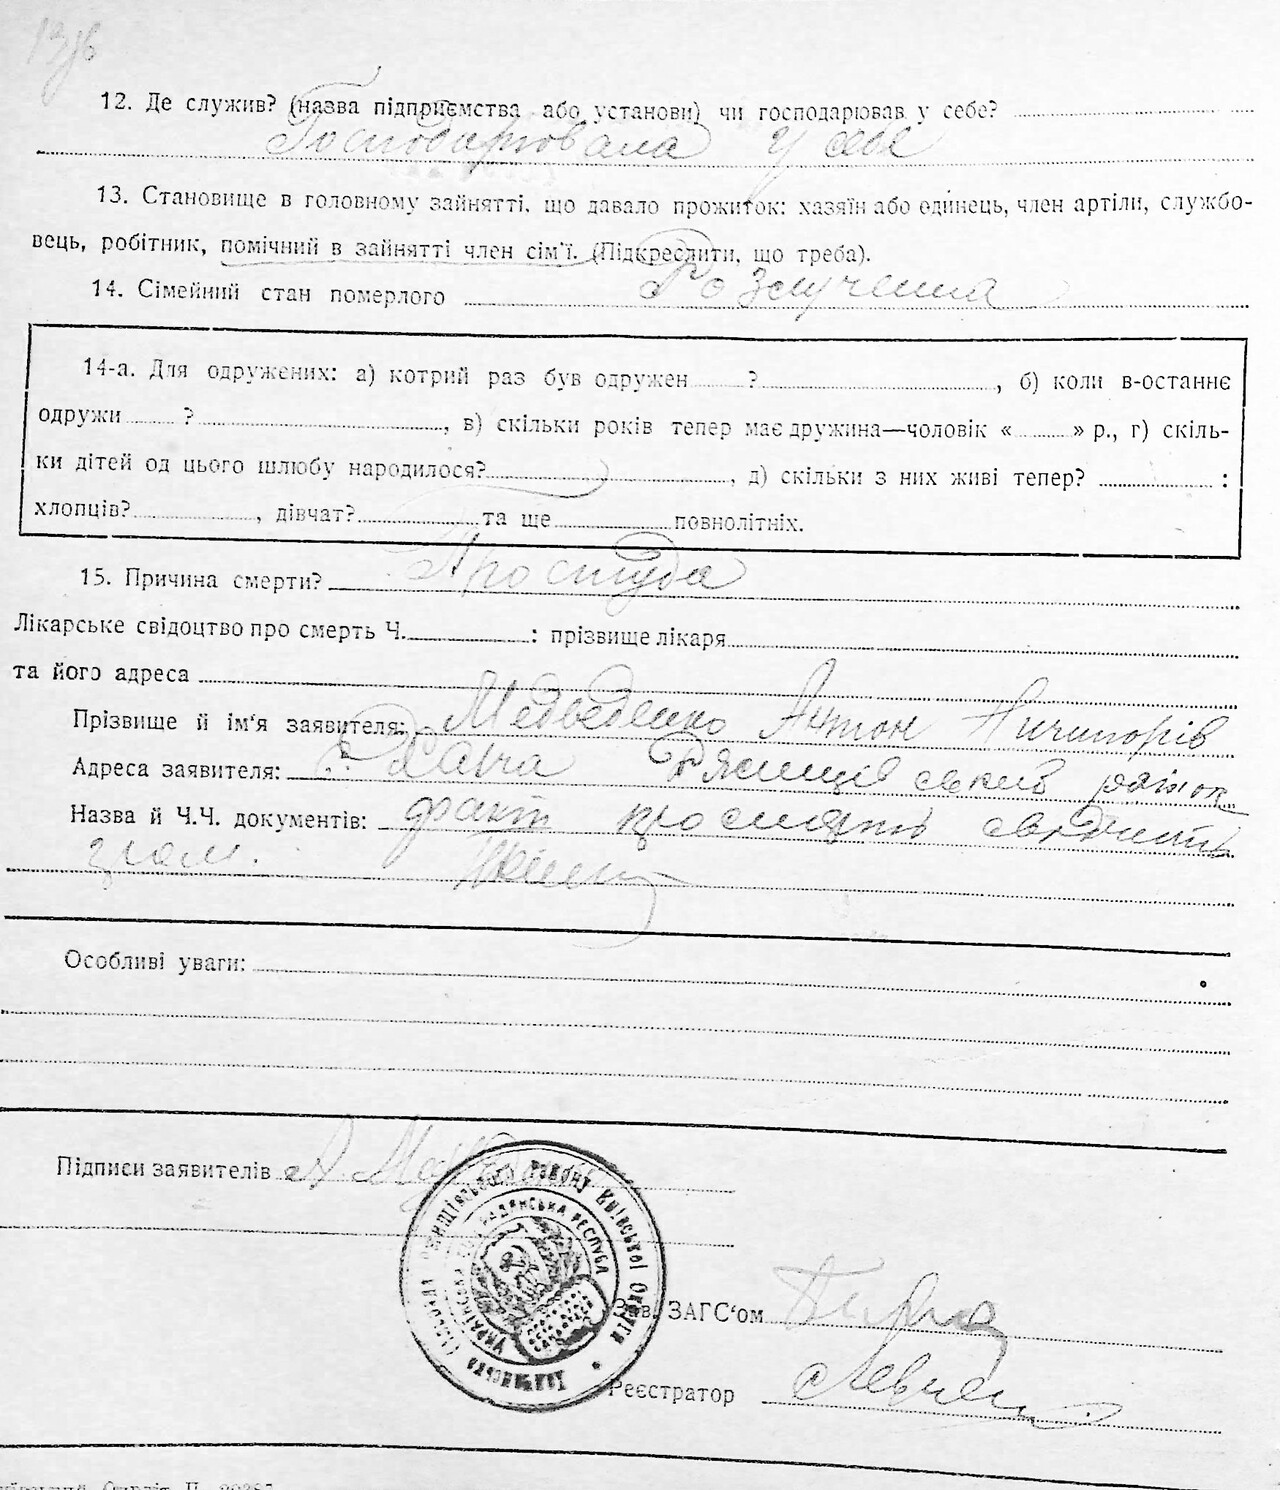 13зв
12. Де служив? (назва підприємства або установи) чи господарював у себе?
Господарювала у себе
13. Становище в головному зайнятті, що давало прожиток: хазяїн або одинець, член артіли, службо-
вець, робітник, помічний в зайнятті член сім'ї. (Підкреслити, що треба).
14. Сімейний стан померлого Розлучена
14-а. Для одружених: а) котрий раз був одружен ? , б) коли в-останнє
одружи ? , в) скільки років тепер має дружина—чоловік « » р., г) скіль-
ки дітей од цього шлюбу народилося? , д) скільки з них живі тепер? :
хлопців? , дівчат? та ще повнолітніх.
15. Причина смерти? Простуда
Лікарське свідоцтво про смерть Ч. : прізвище лікаря
та його адреса
Прізвище й ім'я заявителя: Медведенко Антон Ничипорів
Адреса заявителя: район
Назва й Ч.Ч. документів: факт про смерть свідчить
Особливі уваги:
Підписи заявителів А. Мед
району Київської Округи
Українська Радянська Республ
Зав. ЗАГС'ом
Реєстратор